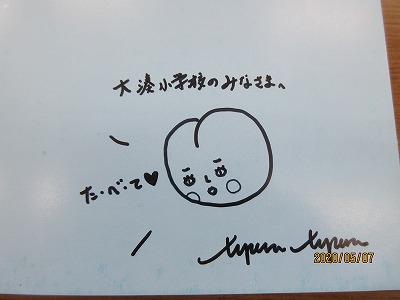 大湊小学校のみなさまへ
た・べ・て♥
2020/05/07